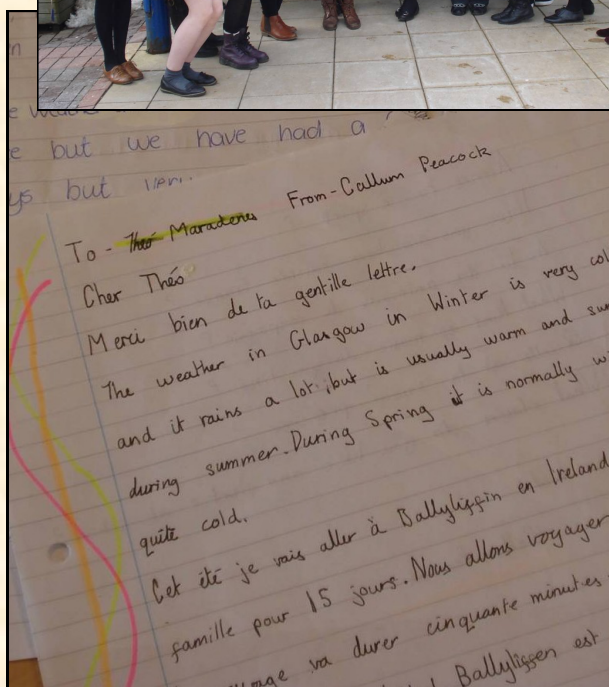 e but we have had a
ys but very
To - Theó Maradenes From - Callum Peacock
Cher Théo
Merci bien de ta gentille lettre.
The weather in Glasgow in Winter is very col
and it rains a lot, but is usually warm and su
during summer. During Spring it is normally w
quite cold.
Cet été je vais aller à Ballyliffin en Ireland
famille pour 15 jours. Nous allons voyager
va durer cinquante minutes
Ballyliffen est